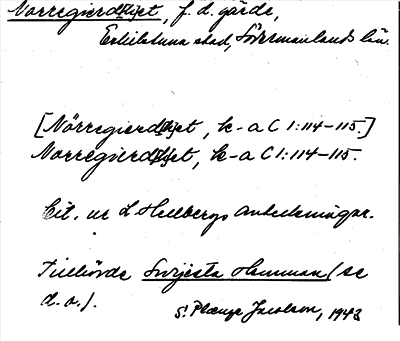 Norregierdhet, f. d. gärde,
Eskilstuna stad, Södermanlands län.
[Nörregierdhet, k-a C 1:114-115.]
Norregierdhet, k-a C 1:114-115.
Cit. ur L Hellbergs anteckningar.
Tillhörde Surjesta Hemman (se
d. o.).
S. Plænge Jacobson, 1943